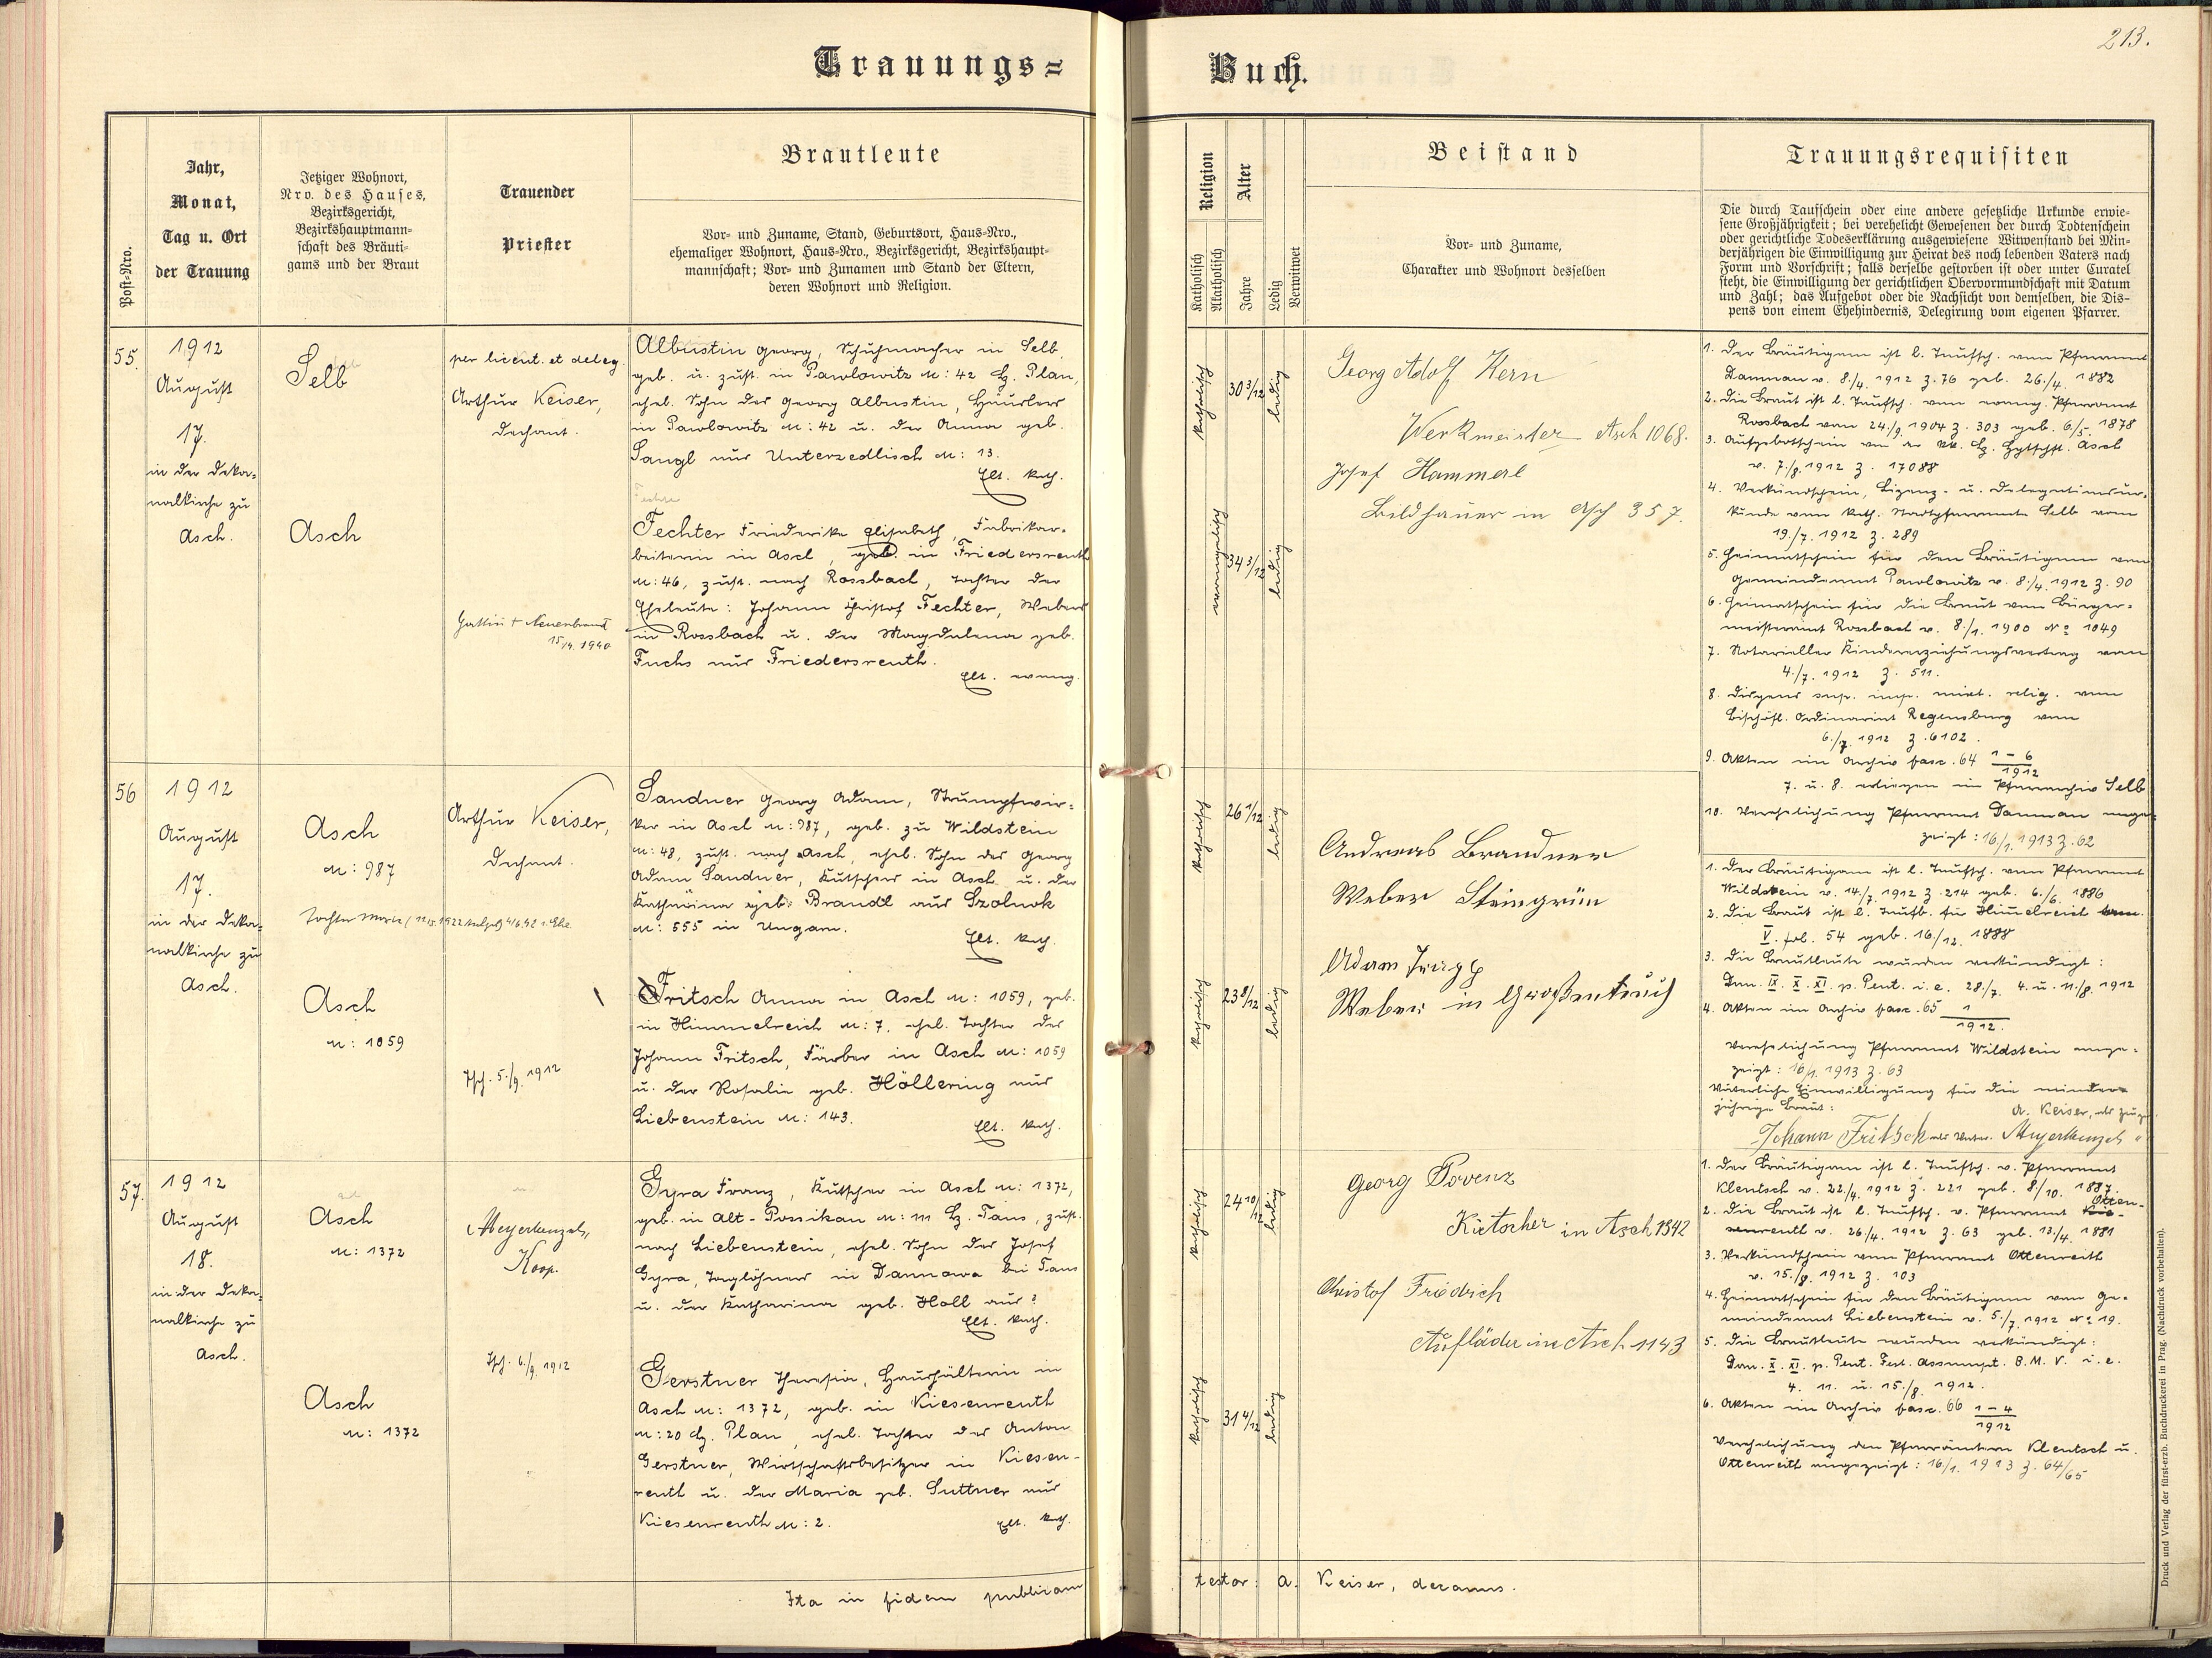 213.
Trauungs=
Buch.
Post-Nro.
Jahr,
Monat,
Tag u. Ort
der Trauung
Jetziger Wohnort,
Nro. des Hauses,
Bezirksgericht,
Bezirkshauptmann-
schaft des Bräuti-
gams und der Braut
Trauender
Priester
Brautleute
Vor- und Zuname, Stand, Geburtsort, Haus-Nro.,
ehemaliger Wohnort, Haus-Nro., Bezirksgericht, Bezirkshaupt-
mannschaft; Vor- und Zunamen und Stand der Eltern,
deren Wohnort und Religion.
Religion
Katholisch
Akatholisch
Alter
Jahre
Ledig
Verwitwet
Beistand
Vor- und Zuname,
Charakter und Wohnort desselben
Trauungsrequisiten
Die durch Taufschein oder eine andere gesetzliche Urkunde erwie-
sene Großjährigkeit; bei verehelicht Gewesenen der durch Todtenschein
oder gerichtliche Todeserklärung ausgewiesene Witwenstand bei Min-
derjährigen die Einwilligung zur Heirat des noch lebenden Vaters nach
Form und Vorschrift; falls derselbe gestorben ist oder unter Curatel
steht, die Einwilligung der gerichtlichen Obervormundschaft mit Datum
und Zahl; das Aufgebot oder die Nachsicht von demselben, die Dis-
pens von einem Ehehindernis, Delegirung vom eigenen Pfarrer.
55.
1912
August
17.
in der Deka-
nalkirche zu
Asch.
Selb
Asch
per licent. et deleg.
Arthur Keiser,
Dechant.
Gattin + Neuenbrand
15/4. 1940
Albustin Georg, Schuhmacher in Selb,
geb. u. zust. in Pawlowitz N: 42 Bz. Plan,
ehel. Sohn des Georg Albustin, Häuslers
in Pawlowitz N: 42 u. der Anna geb.
Sangl aus Unterzedlisch N: 13.
Elt. kath.
Fechter Friederike Elisabeth, Fabrikar-
beiterin in Asch, geb. in Friedersreuth
N: 46, zust. nach Rossbach, Tochter der
Eheleute: Johann Christof Fechter, Webers
in Rossbach u. der Magdalena geb.
Fuchs aus Friedersreuth.
Elt. evang.
katholisch
30 3/12
ledig
evangelisch
34 3/12
ledig
Georg Adolf Kern
Werkmeister Asch 1068.
Josef Hammerl
Bildhauer in Asch 357.
1. Der Bräutigam ist l. Taufsch. vom Pfarramt
Damnau v. 8./4. 1912 Z. 76 geb. 26./4. 1882
2. Die Braut ist l. Taufsch. vom evang. Pfarramt
Rossbach vom 24./9. 1904 Z. 303 geb. 6/5. 1878
3. Aufgebotschein von der kk. Bz. Hptschft. Asch
v. 7./8. 1912 Z. 17088
4. Verkündschein, Lizenz- u. Delegationsur-
kunde vom kath. Stadtpfarramte Selb vom
19./7. 1912 Z. 289
5. Heimatschein für den Bräutigam vom
Gemeindeamt Pawlowitz v. 8./4. 1912 Z. 90
6. Heimatschein für die Braut vom Bürger-
meisteramt Rossbach v. 8./1. 1900 No 1049
7. Notarieller Kindererziehungsvertrag vom
4./7. 1912 Z. 511.
8. Dispens sup. imp. mixt. relig. vom
Bischöfl. Ordinariat Regensburg vom
6./7. 1912 Z. 6102.
9. Akten im Archiv fasc. 64 1-6/1912
7. u. 8. erliegen im Pfarrarchiv Selb
10. Verehelichung Pfarramt Damnau ange-
zeigt: 16/1. 1913 Z. 62
56
1912
August
17.
in der Deka-
nalkirche zu
Asch.
Asch
N: 987
Asch
N: 1059
Arthur Keiser,
Dechant.
Tsch. 5./9. 1912
Sandner Georg Adam, Strumpfwir-
ker in Asch N: 987, geb. zu Wildstein
N: 48, zust. nach Asch, ehel. Sohn des Georg
Adam Sandner, Kutschers in Asch u. der
Katharina geb. Brandl aus Szolnok
N: 555 in Ungarn.
Elt. kath.
Fritsch Anna in Asch N: 1059, geb.
in Himmelreich N: 7, ehel. Tochter des
Johann Fritsch, Färber in Asch N: 1059
u. der Rosalie geb. Höllering aus
Liebenstein N: 143.
Elt. kath.
katholisch
26 1/12
ledig
katholisch
23 8/12
ledig
Andreas Brandner
Weber Steingrün
Adam
Weber in
1. Der Bräutigam ist l. Taufsch. vom Pfarramt
Wildstein v. 14./7. 1912 Z. 214 geb. 6./6. 1886
2. Die Braut ist l. Taufb. für Himelreich tom.
V. fol. 54 geb. 16./12. 1888
3. Die Brautleute wurden verkündigt:
Dom. IX. X. XI. p. Pent. i. e. 28./7. 4. u. 11./8. 1912
4. Akten im Archiv fasc. 65 1/1912.
Verehelichung Pfarramt Wildstein ange-
zeigt: 16/1. 1913 Z. 63
Väterliche Einwilligung für die minder-
jährige Braut:
A. Keiser, als Zeuge
Johann Fritsch als Vater. Meyerkenzels "
57.
1912
August
18.
in der Deka-
nalkirche zu
Asch.
Asch
N: 1372
Asch
N: 1372
Koop.
Tsch. 6./9. 1912
Gyra Franz, Kutscher in Asch N: 1372,
geb. in Alt-Possikau N: 111 Bz. Taus, zust.
nach Liebenstein, ehel. Sohn des Josef
Gyra, Taglöhners in Dannawa bei Taus
u. der Katharina geb. Holl aus?
Elt. kath.
Gerstner Theresia, Haushälterin in
Asch N: 1372, geb. in Kiesenreuth
N: 20 Bz. Plan, ehel. Tochter des Anton
Gerstner, Wirtschaftsbesitzer in Kiesen-
reuth u. der Maria geb. Suttner aus
Kiesenreuth N: 2.
Elt. kath.
katholisch
24 10/12
ledig
katholisch
31 4/12
ledig
Georg Povenz
Kutscher in Asch 1342
Christof Friedrich
Aufläder in Asch 1143
1. Der Bräutigam ist l. Taufsch. v. Pfarramt
Klentsch v. 22./4. 1912 Z. 221 geb. 8/10. 1887.
2. Die Braut ist l. Taufsch. v. Pfarramt Otten-
reuth v. 26/4. 1912 Z. 63 geb. 13./4. 1881
3. Verkündschein vom Pfarramt Ottenreith
v. 15./8. 1912 Z. 103
4. Heimatschein für den Bräutigam vom Ge-
meindeamt Liebenstein v. 5./7. 1912 No 19.
5. Die Brautleute wurden verkündigt:
Dom. X. XI. p. Pent. Fest. Assumpt. B. M. V. i. e.
4. 11. u. 15./8. 1912.
6. Akten im Archiv fasc. 66 1-4/1912
Verehelichung den Pfarrämtern Klentsch u.
Ottenreith angezeigt: 16/1. 1913 Z. 64/65
Ita in fidem publicam
testor: A. Keiser, decanus.
Druck und Verlag der fürst-erzb. Buchdruckerei in Prag. (Nachdruck vorbehalten).